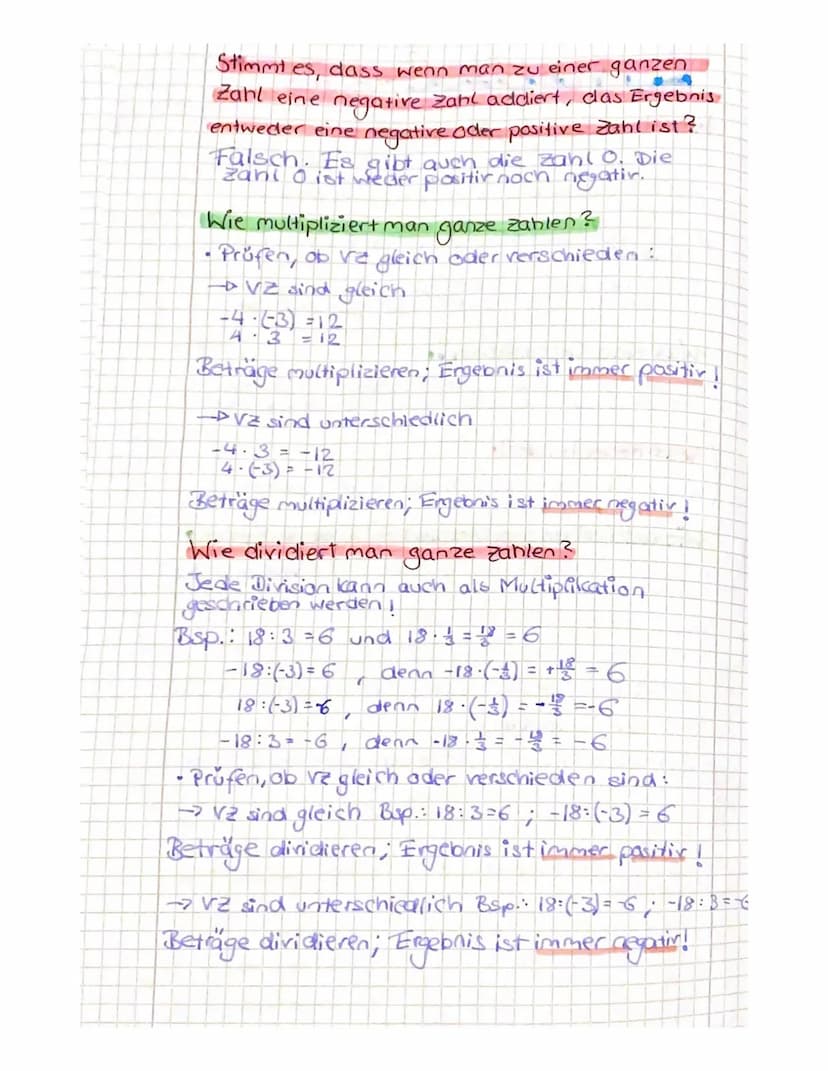 Stimmt es, dass wenn man zu einer ganzen
Zahl eine negative Zahl addiert, das Ergebnis
entweder eine negative oder positive Zahl ist?
Falsch. Es gibt auch die Zahl 0. Die
Zahl 0 ist weder positiv noch negativ.
Wie multipliziert man ganze Zahlen?
• Prüfen, ob VZ gleich oder verschieden:
→ VZ sind gleich
-4 · (-3) = 12
4 · 3 = 12
Beträge multiplizieren; Ergebnis ist immer positiv!
→ VZ sind unterschiedlich
-4 · 3 = -12
4 · (-3) = -12
Beträge multiplizieren; Ergebnis ist immer negativ!
Wie dividiert man ganze Zahlen?
Jede Division kann auch als Multiplikation
geschrieben werden!
Bsp.: 18 : 3 = 6 und 18 · 1/3 = 18/3 = 6
-18 : (-3) = 6, denn -18 · (-1/3) = +18/3 = 6
18 : (-3) = -6, denn 18 · (-1/3) = -18/3 = -6
-18 : 3 = -6, denn -18 · 1/3 = -18/3 = -6
• Prüfen, ob VZ gleich oder verschieden sind:
→ VZ sind gleich Bsp.: 18 : 3 = 6 ; -18 : (-3) = 6
Beträge dividieren; Ergebnis ist immer positiv!
→ VZ sind unterschiedlich Bsp.: 18 : (-3) = -6 ; -18 : 3 = -6
Beträge dividieren; Ergebnis ist immer negativ!